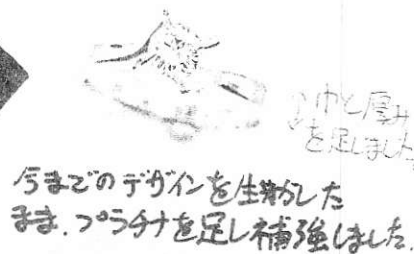 巾と厚み
を足しました
今までのデザインを生かした
まま、プラチナを足し補強しました。